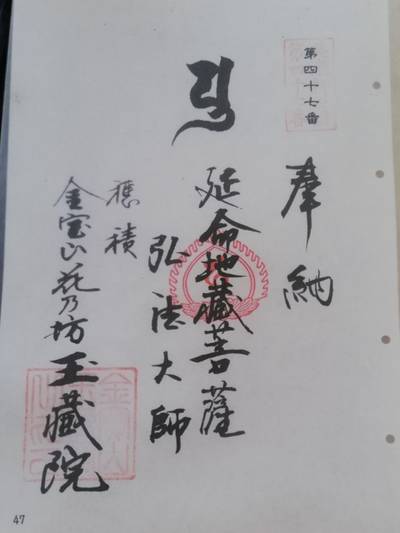 第四十七番
奉納
延命地藏菩薩
弘法大師
穂積
金宝山花乃坊玉藏院
47